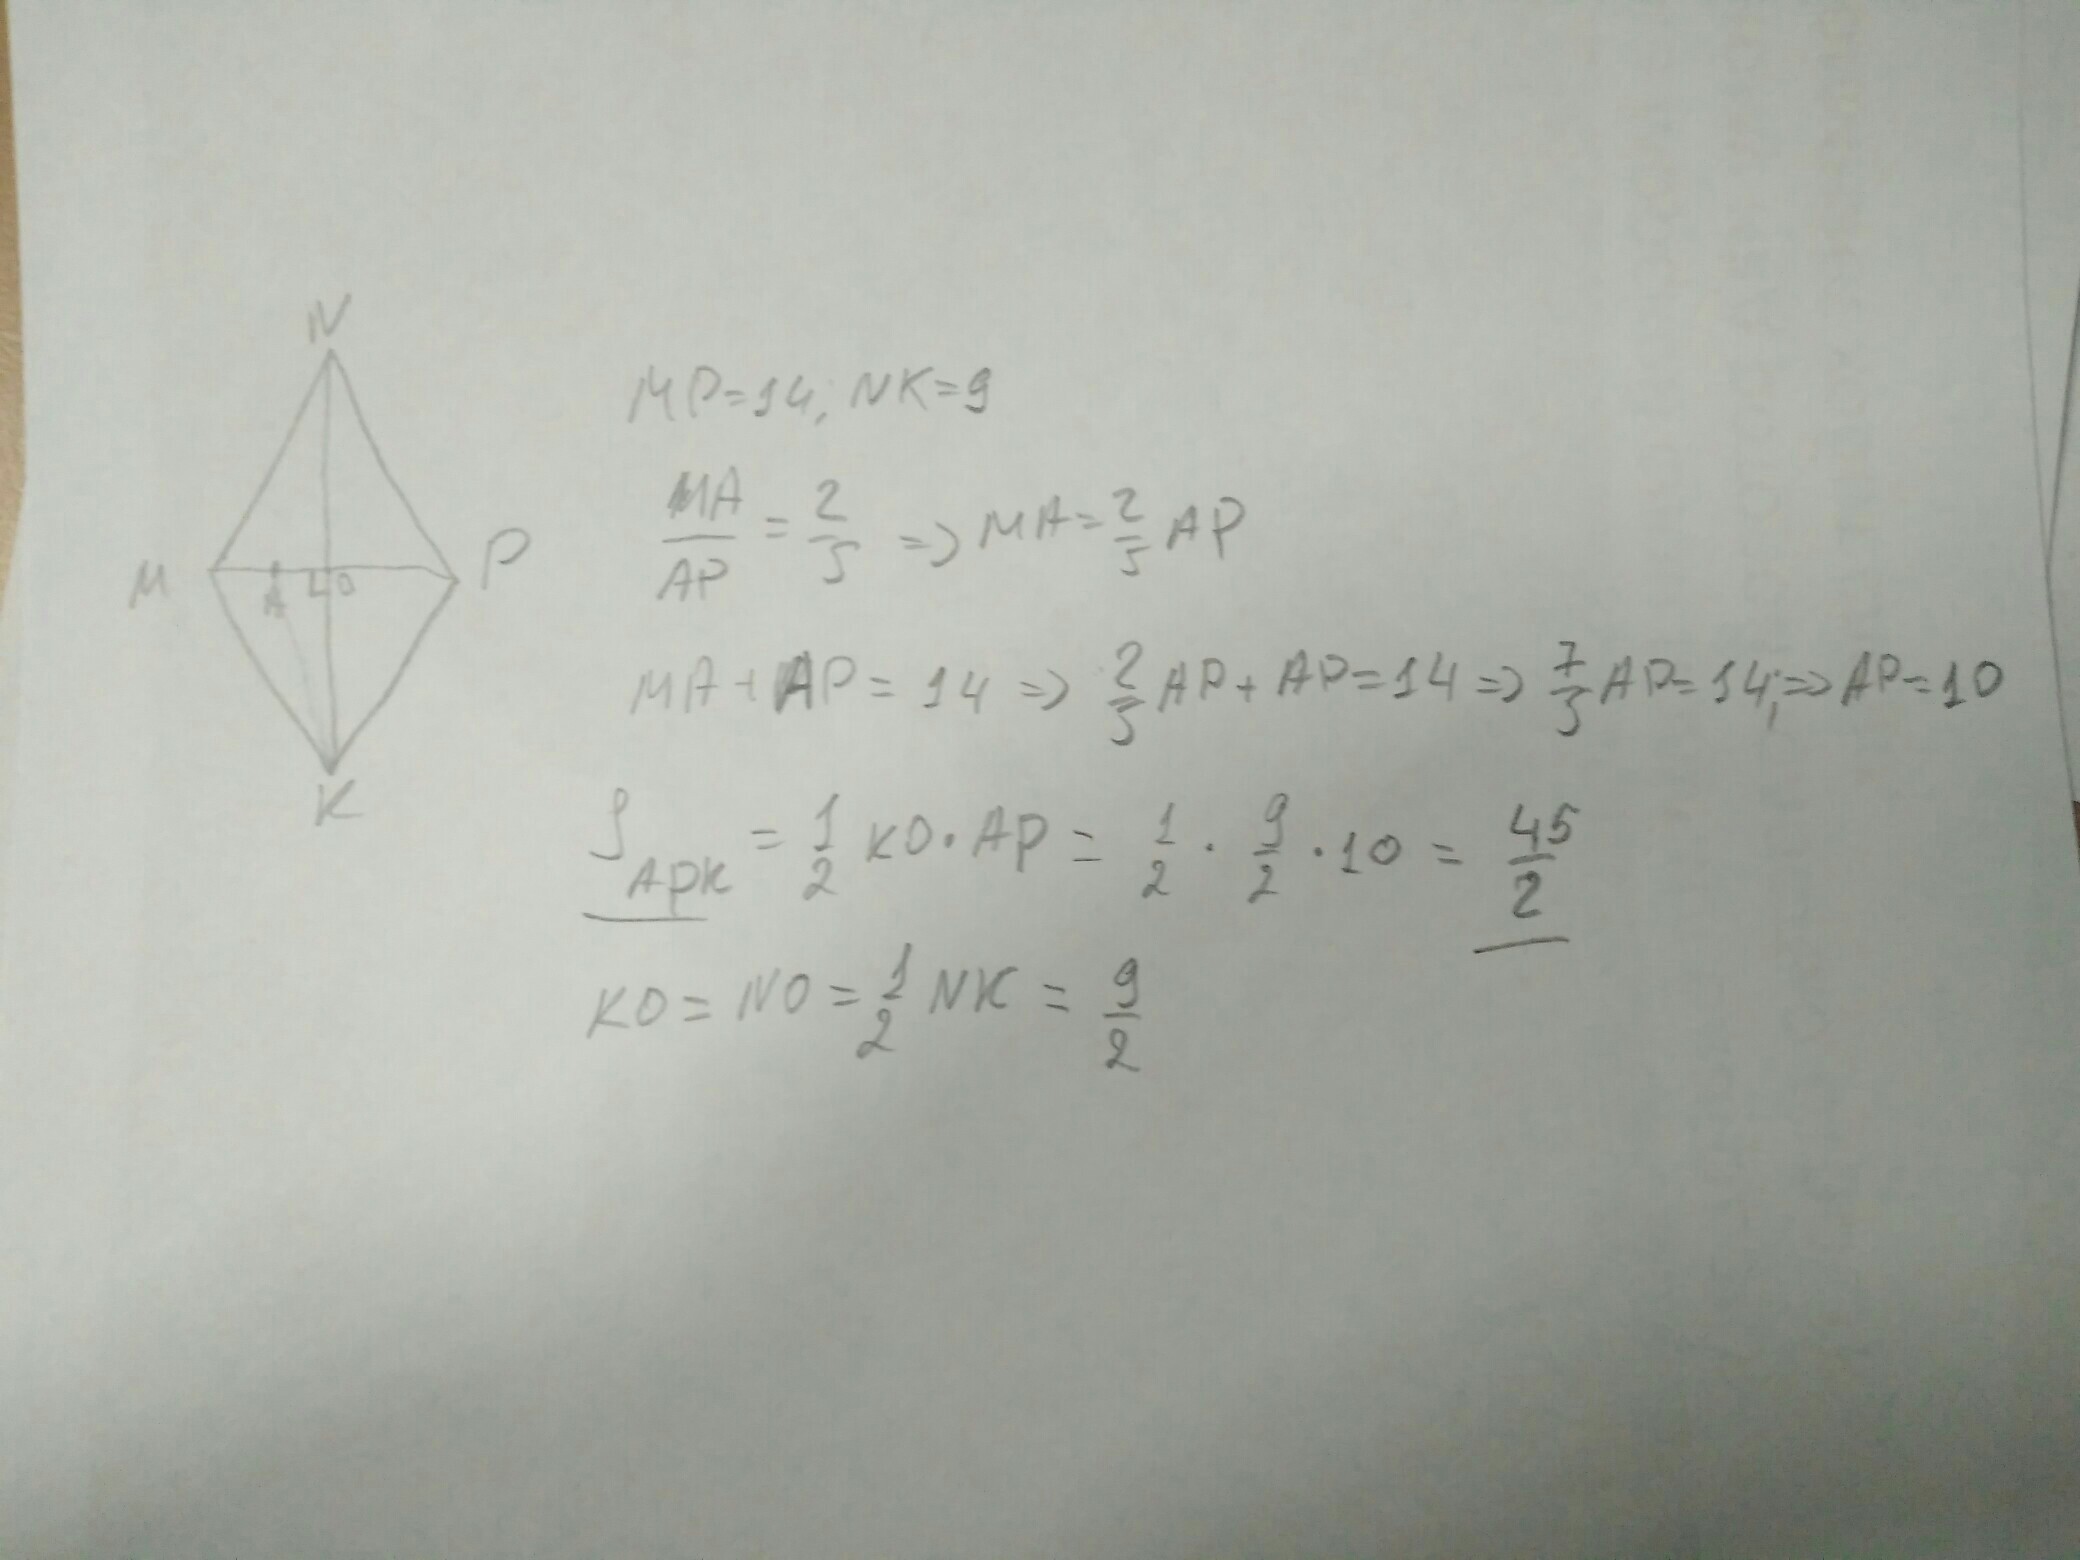 N
M A O P
K
MP=14; NK=9
MA/AP = 2/5 => MA = 2/5 AP
MA + AP = 14 => 2/5 AP + AP = 14 => 7/5 AP = 14; => AP = 10
S APK = 1/2 KO · AP = 1/2 · 9/2 · 10 = 45/2
KO = NO = 1/2 NK = 9/2